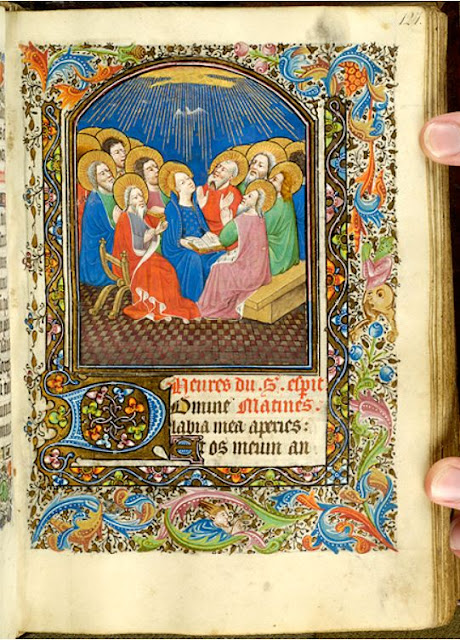 127.
Heures du .S. esperit
Domine Matines.
labia mea aperies:
Et os meum an